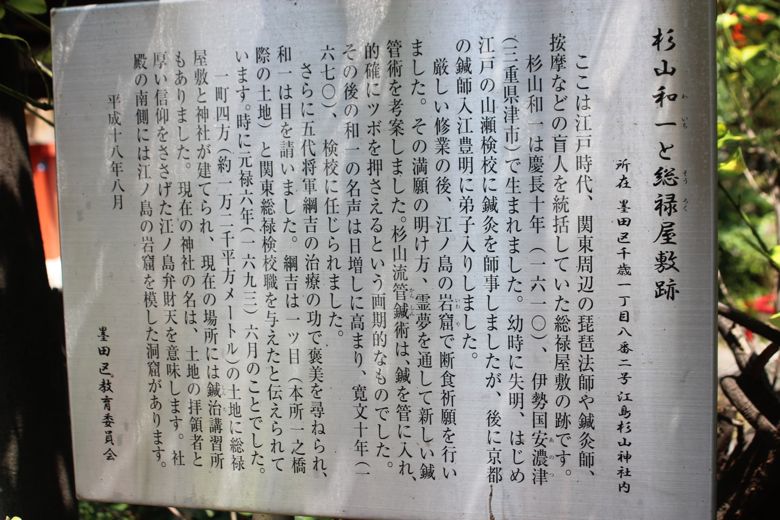 杉山和一と総禄屋敷跡
わいち
そうろく
所在 墨田区千歳一丁目八番二号 江島杉山神社内
ここは江戸時代、関東周辺の琵琶法師や鍼灸師、
按摩などの盲人を統括していた総禄屋敷の跡です。
杉山和一は慶長十年（一六一〇）、伊勢国安濃津
あのつ
（三重県津市）で生まれました。幼時に失明、はじめ
江戸の山瀬検校に鍼灸を師事しましたが、後に京都
の鍼師入江豊明に弟子入りしました。
厳しい修業の後、江ノ島の岩窟で断食祈願を行い
いわや
ました。その満願の明け方、霊夢を通して新しい鍼
管術を考案しました。杉山流管鍼術は、鍼を管に入れ、
的確にツボを押さえるという画期的なものでした。
その後の和一の名声は日増しに高まり、寛文十年（一
六七〇）、検校に任じられました。
さらに五代将軍綱吉の治療の功で褒美を尋ねられ、
和一は目を請いました。綱吉は一ツ目（本所一之橋
際の土地）と関東総禄検校職を与えたと伝えられて
います。時に元禄六年（一六九三）六月のことでした。
一町四方（約一万二千平方メートル）の土地に総禄
屋敷と神社が建てられ、現在の場所には鍼治講習所
もありました。現在の神社の名は、土地の拝領者と
厚い信仰をささげた江ノ島弁財天を意味します。社
殿の南側には江ノ島の岩窟を模した洞窟があります。
平成十八年八月
墨田区教育委員会